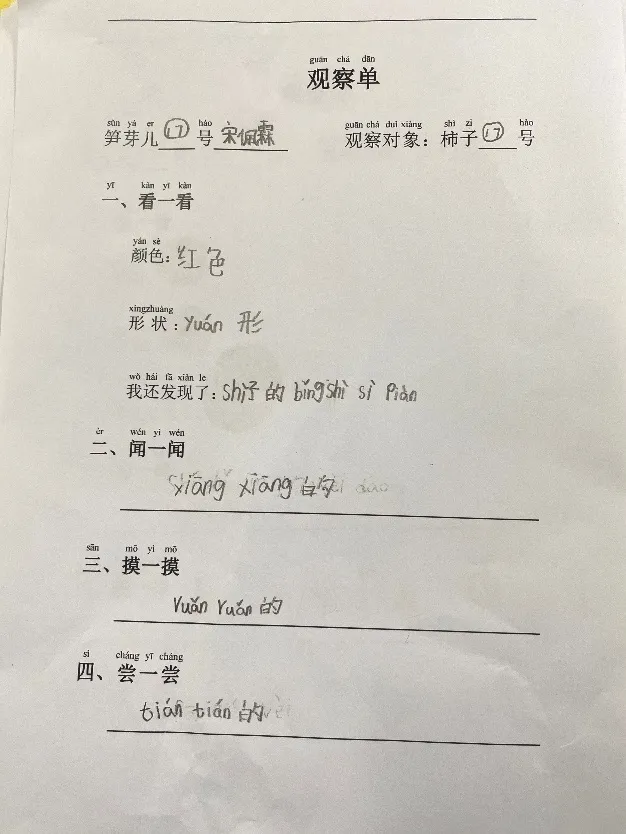 guān chá dān
观察单
sǔn yá er hào
笋芽儿 17 号 宋佩霖
guān chá duì xiàng shì zi hào
观察对象：柿子 17 号
yī kàn yī kàn
一、看一看
yán sè
颜色：红色
xíngzhuàng
形状：yuán 形
wǒ hái fā xiàn le
我还发现了：shì子 的 bǐngshì sì piàn
èr wén yi wén
二、闻一闻
xiāng xiāng 的
sān mō yi mō
三、摸一摸
ruǎn ruǎn 的
sì cháng yī cháng
四、尝一尝
tián tián 的